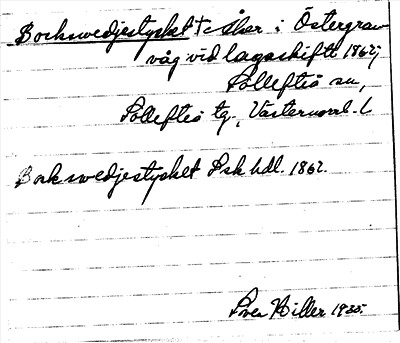 Bockswedjestycket t. Åker i Östergran
våg vid lagaskifte 1862;
Sollefteå sn,
Sollefteå tg., Västernorrl. l.
Bockswedjestycket Lsk hdl. 1862.
Sven Hiller 1935.